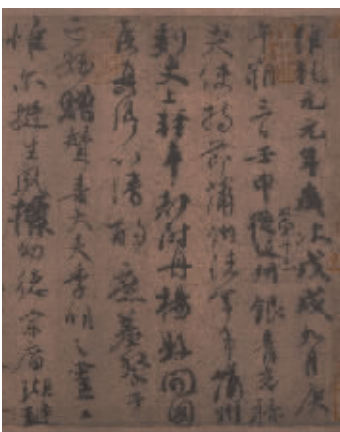 維乾元元年歲次戊戌九月庚
午朔三日壬申第十三叔銀青光祿
夫使持節蒲州諸軍事蒲州
刺史上輕車都尉丹楊縣開國
侯真卿以清酌庶羞祭于
亡姪贈贊善大夫季明之靈曰
惟爾挺生夙標幼德宗廟瑚璉